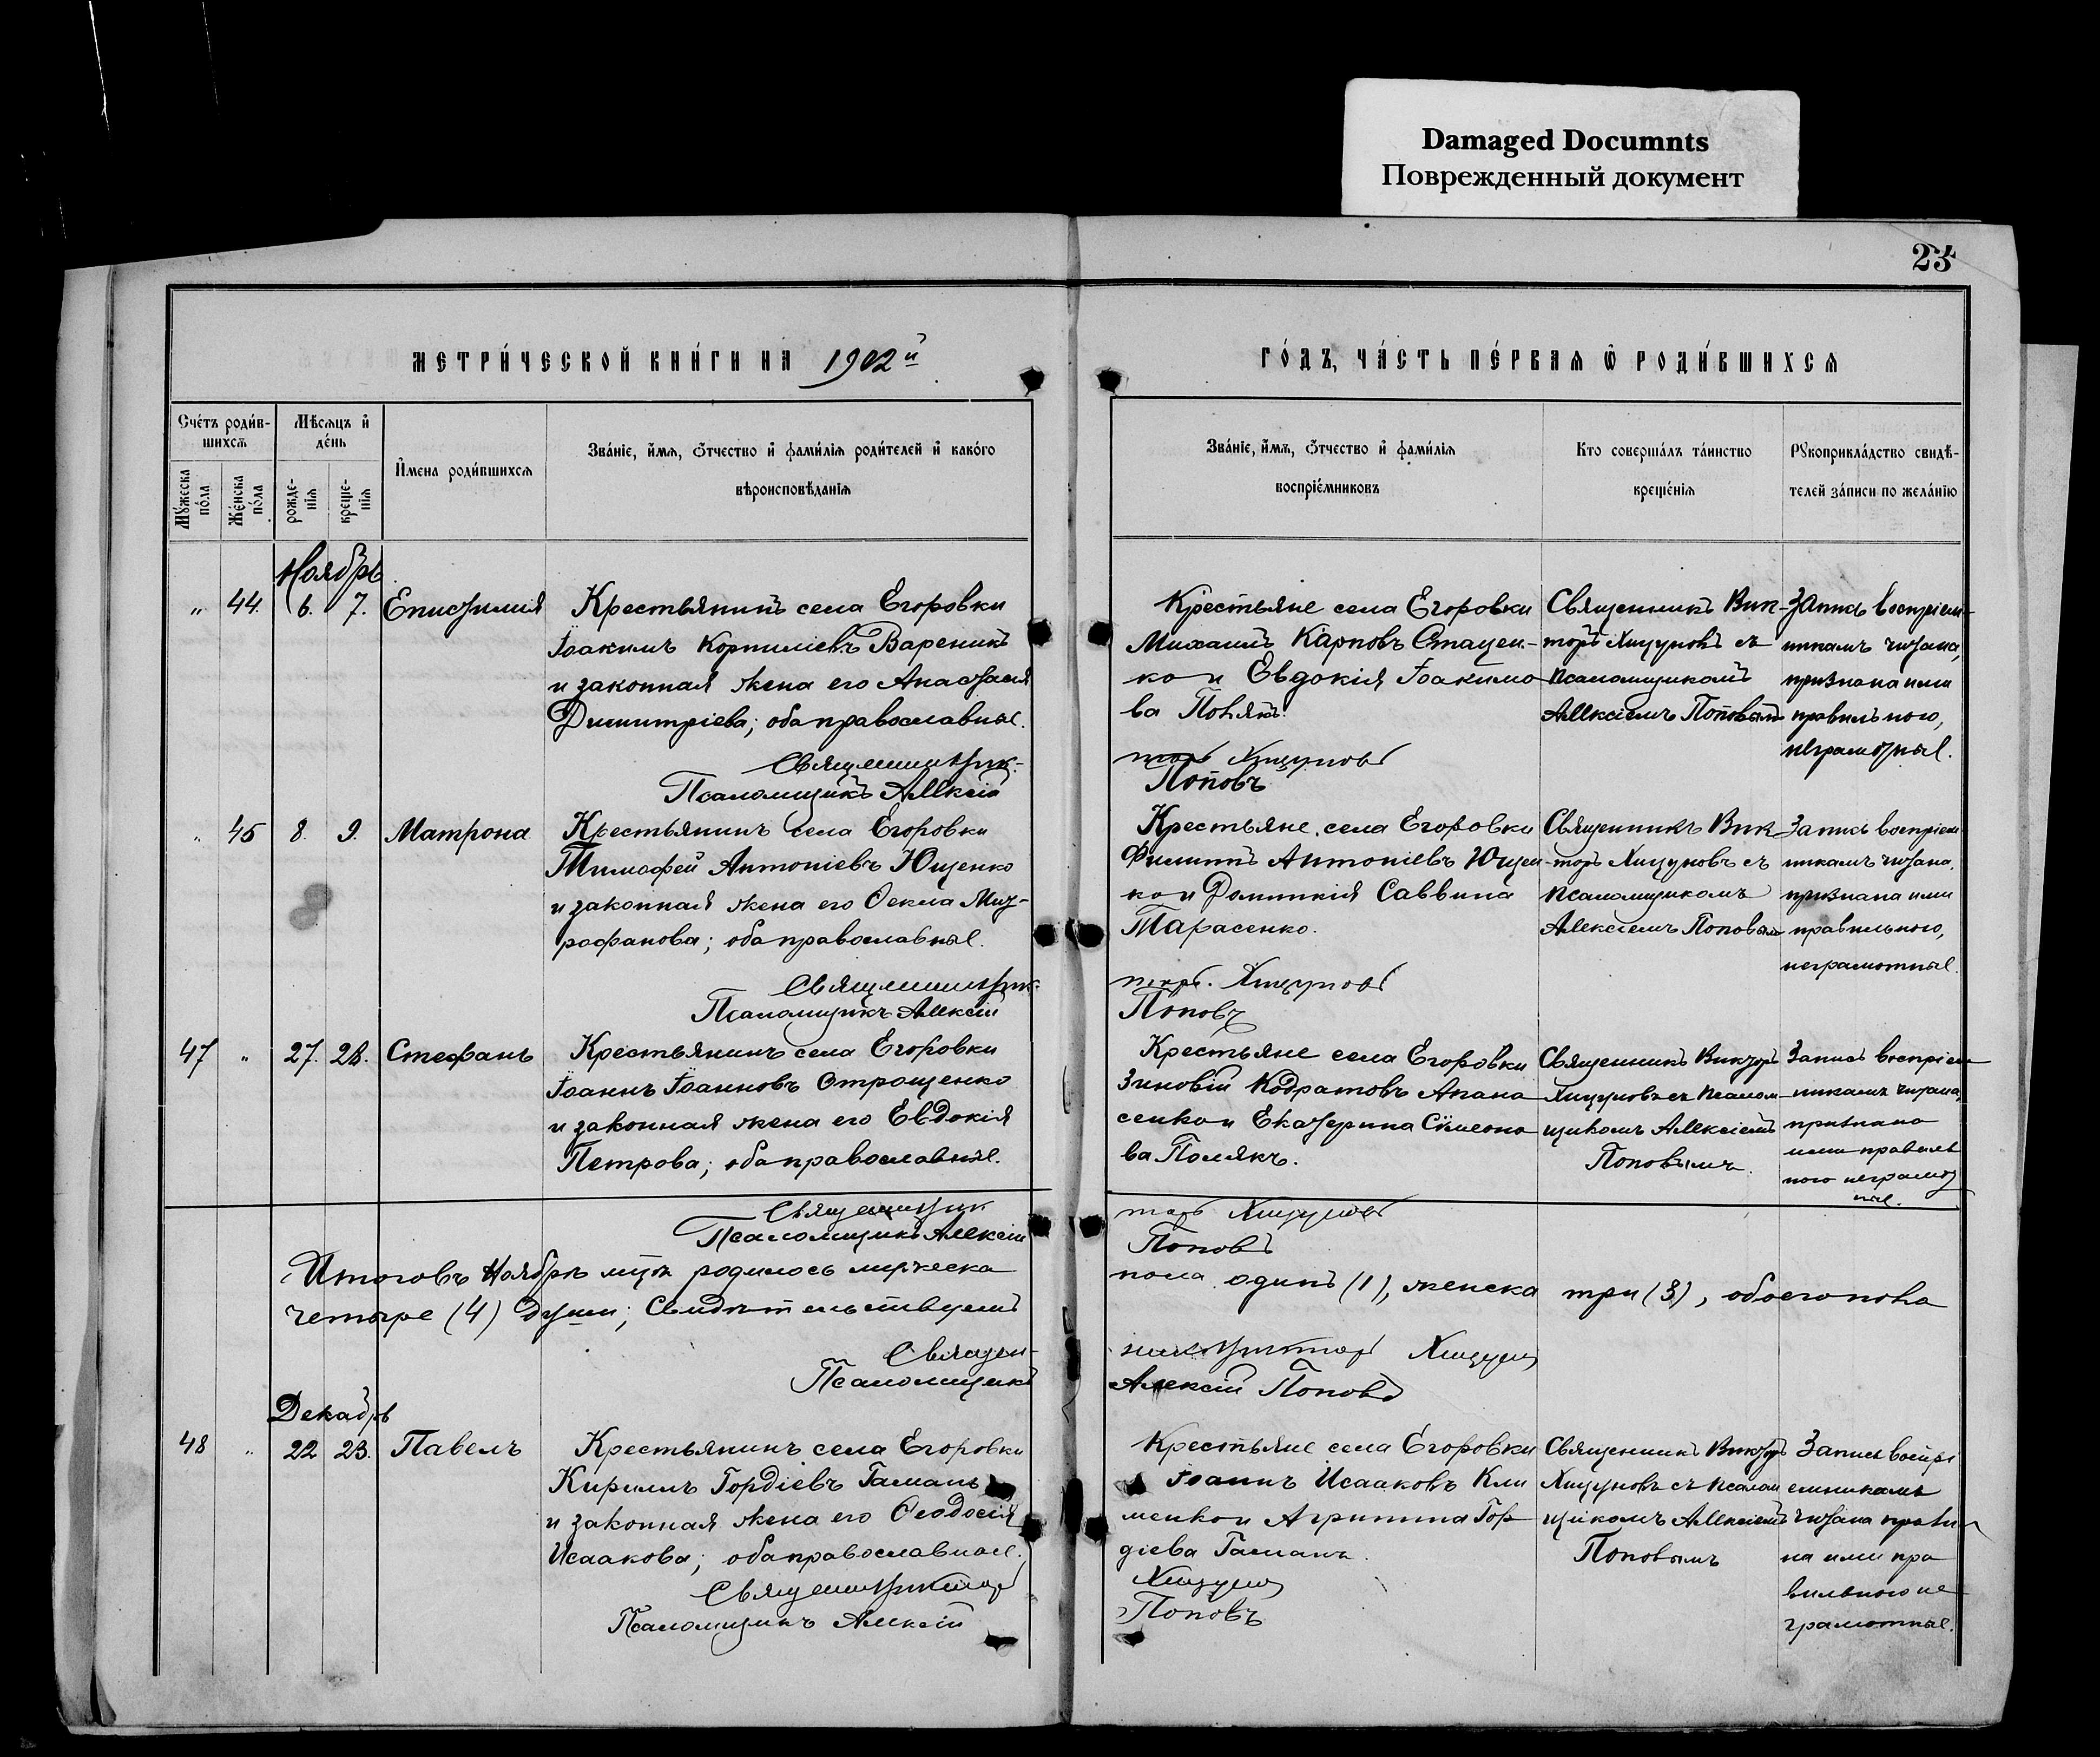 Damaged Documnts
Поврежденный документ
23
МЕТРИ́ЧЕСКОЙ КНИ́ГИ НА 1902й
ГО́ДЪ, ЧА́СТЬ ПЕ́РВАѦ Ѽ РОДИ́ВШИХСѦ
Сче́тъ роди́в-
шихсѧ
Мѣ́сѧцъ и҆
де́нь
И҆мена роди́вшихсѧ
Зва́нїе, и҆́мѧ, ѻ҆́тчество и҆ фами́лїѧ роди́телей и҆ како́го
вѣроисповѣ́данїѧ
Мꙋ́жеска
по́ла
Же́нска
по́ла
рожде-
нїѧ
креще-
нїѧ
Зва́нїе, и҆́мѧ, ѻ҆́тчество и҆ фами́лїѧ
воспрїе́мниковъ
Кто соверша́лъ та́инство
креще́нїѧ
Рꙋкоприкла́дство свидѣ́-
телей за́писи по жела́нїю
Ноябрь
„ 44. 6. 7. Епистимія
Крестьянинъ села Егоровки
Іоакимъ Корниліевъ Вареникъ
и законная жена его Анастасія
Димитріева; оба православные.
Священникъ Вик-
Псаломщикъ Алексій
Крестьяне села Егоровки
Михаилъ Карповъ Стацен-
ко и Евдокія Іоакимо
ва Полякъ.
торъ Хицуновъ
Поповъ
Священникъ Вик-
торъ Хицуновъ съ
псаломщикомъ
Алексіемъ Поповымъ
Запись воспріем-
никамъ читана,
признана ими
правильною,
неграмотные.
„ 45 8. 9. Матрона
Крестьянинъ села Егоровки
Тимофей Антоніевъ Ющенко
и законная жена его Ѳекла Мит-
рофанова; оба православные.
Священникъ Вик-
Псаломщикъ Алексій
Крестьяне села Егоровки
Филиппъ Антоніевъ Ющен-
ко и Домникія Саввина
Тарасенко.
торъ Хицуновъ
Поповъ
Священникъ Вик-
торъ Хицуновъ съ
псаломщикомъ
Алексіемъ Поповымъ
Запись воспріем
никамъ читана,
признана ими
правильною,
неграмотные.
47 „ 27. 28. Стефанъ
Крестьянинъ села Егоровки
Іоаннъ Іоанновъ Отрощенко
и законная жена его Евдокія
Петрова; оба православные.
Священникъ Вик
Псаломщикъ Алексій
Крестьяне села Егоровки
Зиновій Кодратовъ Апана
сенко и Екатерина Симеоно
ва Полякъ.
торъ Хицуновъ
Поповъ
Священникъ Викторъ
Хицуновъ съ псалом-
щикомъ Алексіемъ
Поповымъ.
Запись воспріем
никамъ читана,
признана
ими правиль
ною неграмот
ные.
Итого въ Ноябрѣ мѣсяцѣ родилось мужеска
пола одинъ (1), женска три (3), обоего пола
четыре (4) души; Свидѣтельствуемъ
Священ-
никъ Викторъ Хицунов
Псаломщикъ
Алексій Поповъ
Декабрь
48 „ 22 23. Павелъ
Крестьянинъ села Егоровки
Кириллъ Гордіевъ Гаманъ
и законная жена его Ѳеодосія
Исаакова; оба православные.
Священникъ Виктор
Псаломщикъ Алексій
Крестьяне села Егоровки
Іоаннъ Исааковъ Кли
менко и Агрипина Гор
діева Гаманъ.
Хицунов
Поповъ
Священникъ Викторъ
Хицуновъ съ псалом
щикомъ Алексіемъ
Поповымъ
Запись воспрі
емникамъ
читана призна
на ими пра
вильною не
грамотные.